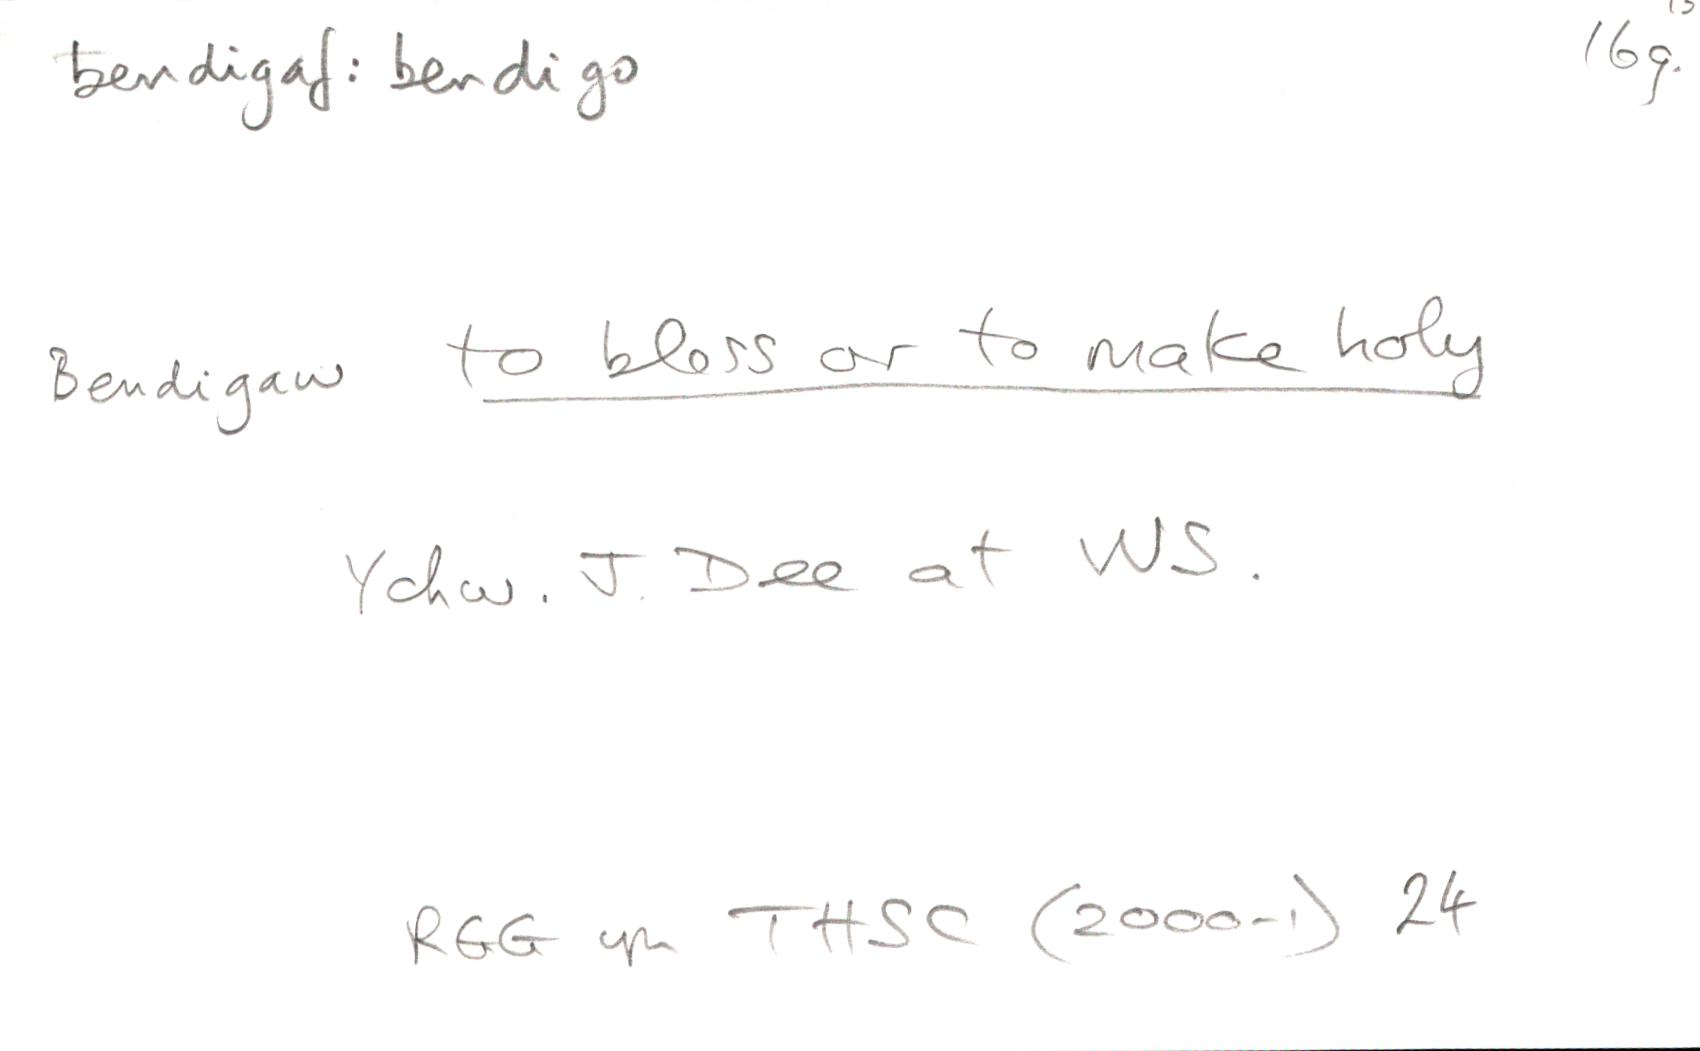 bendigaf: bendigo 16g. 15
Bendigaw to bless or to make holy
Ychw. J. Dee at WS.
RGG yn THSC (2000-1) 24